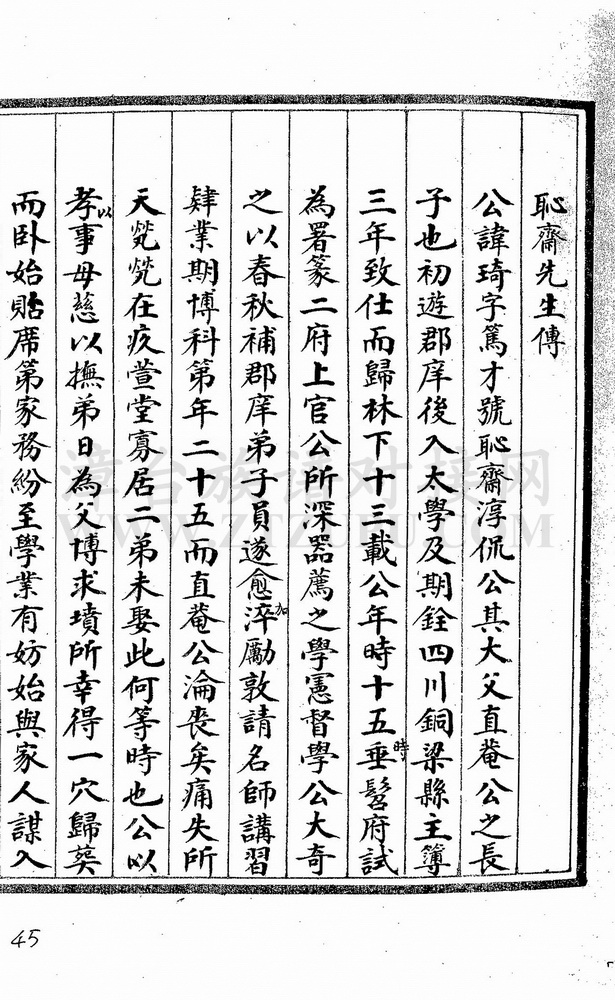 恥齋先生傳
公諱琦字篤才號恥齋淳侃公其大父直菴公之長
子也初遊郡庠後入太學及期銓四川銅梁縣主簿
三年致仕而歸林下十三載公年時十五垂時髫府試
為署篆二府上官公所深器薦之學憲督學公大奇
之以春秋補郡庠弟子員遂愈加淬勵敦請名師講習
肄業期博科第年二十五而直菴公淪喪矣痛失所
天煢煢在疚萱堂寡居二弟未娶此何等時也公以
孝以事母慈以撫弟日為父博求墳所幸得一穴歸葬
而卧始貼席第家務紛至學業有妨始與家人謀入
漳台族谱对接网
WWW.ZTZUPU.COM
45